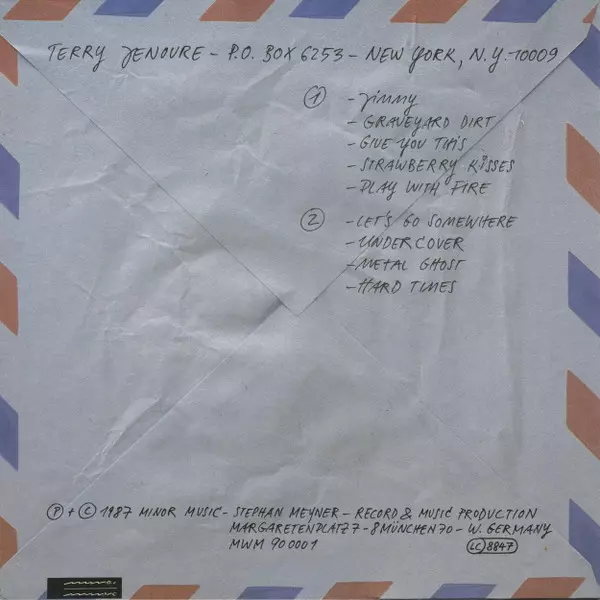 TERRY JENOURE - P.O. BOX 6253 - NEW YORK, N.Y. 10009
① - Jimmy
- GRAVEYARD DIRT
- GIVE YOU THIS
- STRAWBERRY KISSES
- PLAY WITH FIRE
② - LET'S GO SOMEWHERE
- UNDERCOVER
- METAL GHOST
- HARD TIMES
Ⓟ + © 1987 MINOR MUSIC - STEPHAN MEYNER - RECORD & MUSIC PRODUCTION
MARGARETENPLATZ 7 - 8 MÜNCHEN 70 - W. GERMANY
MWM 90 0001
LC 8847